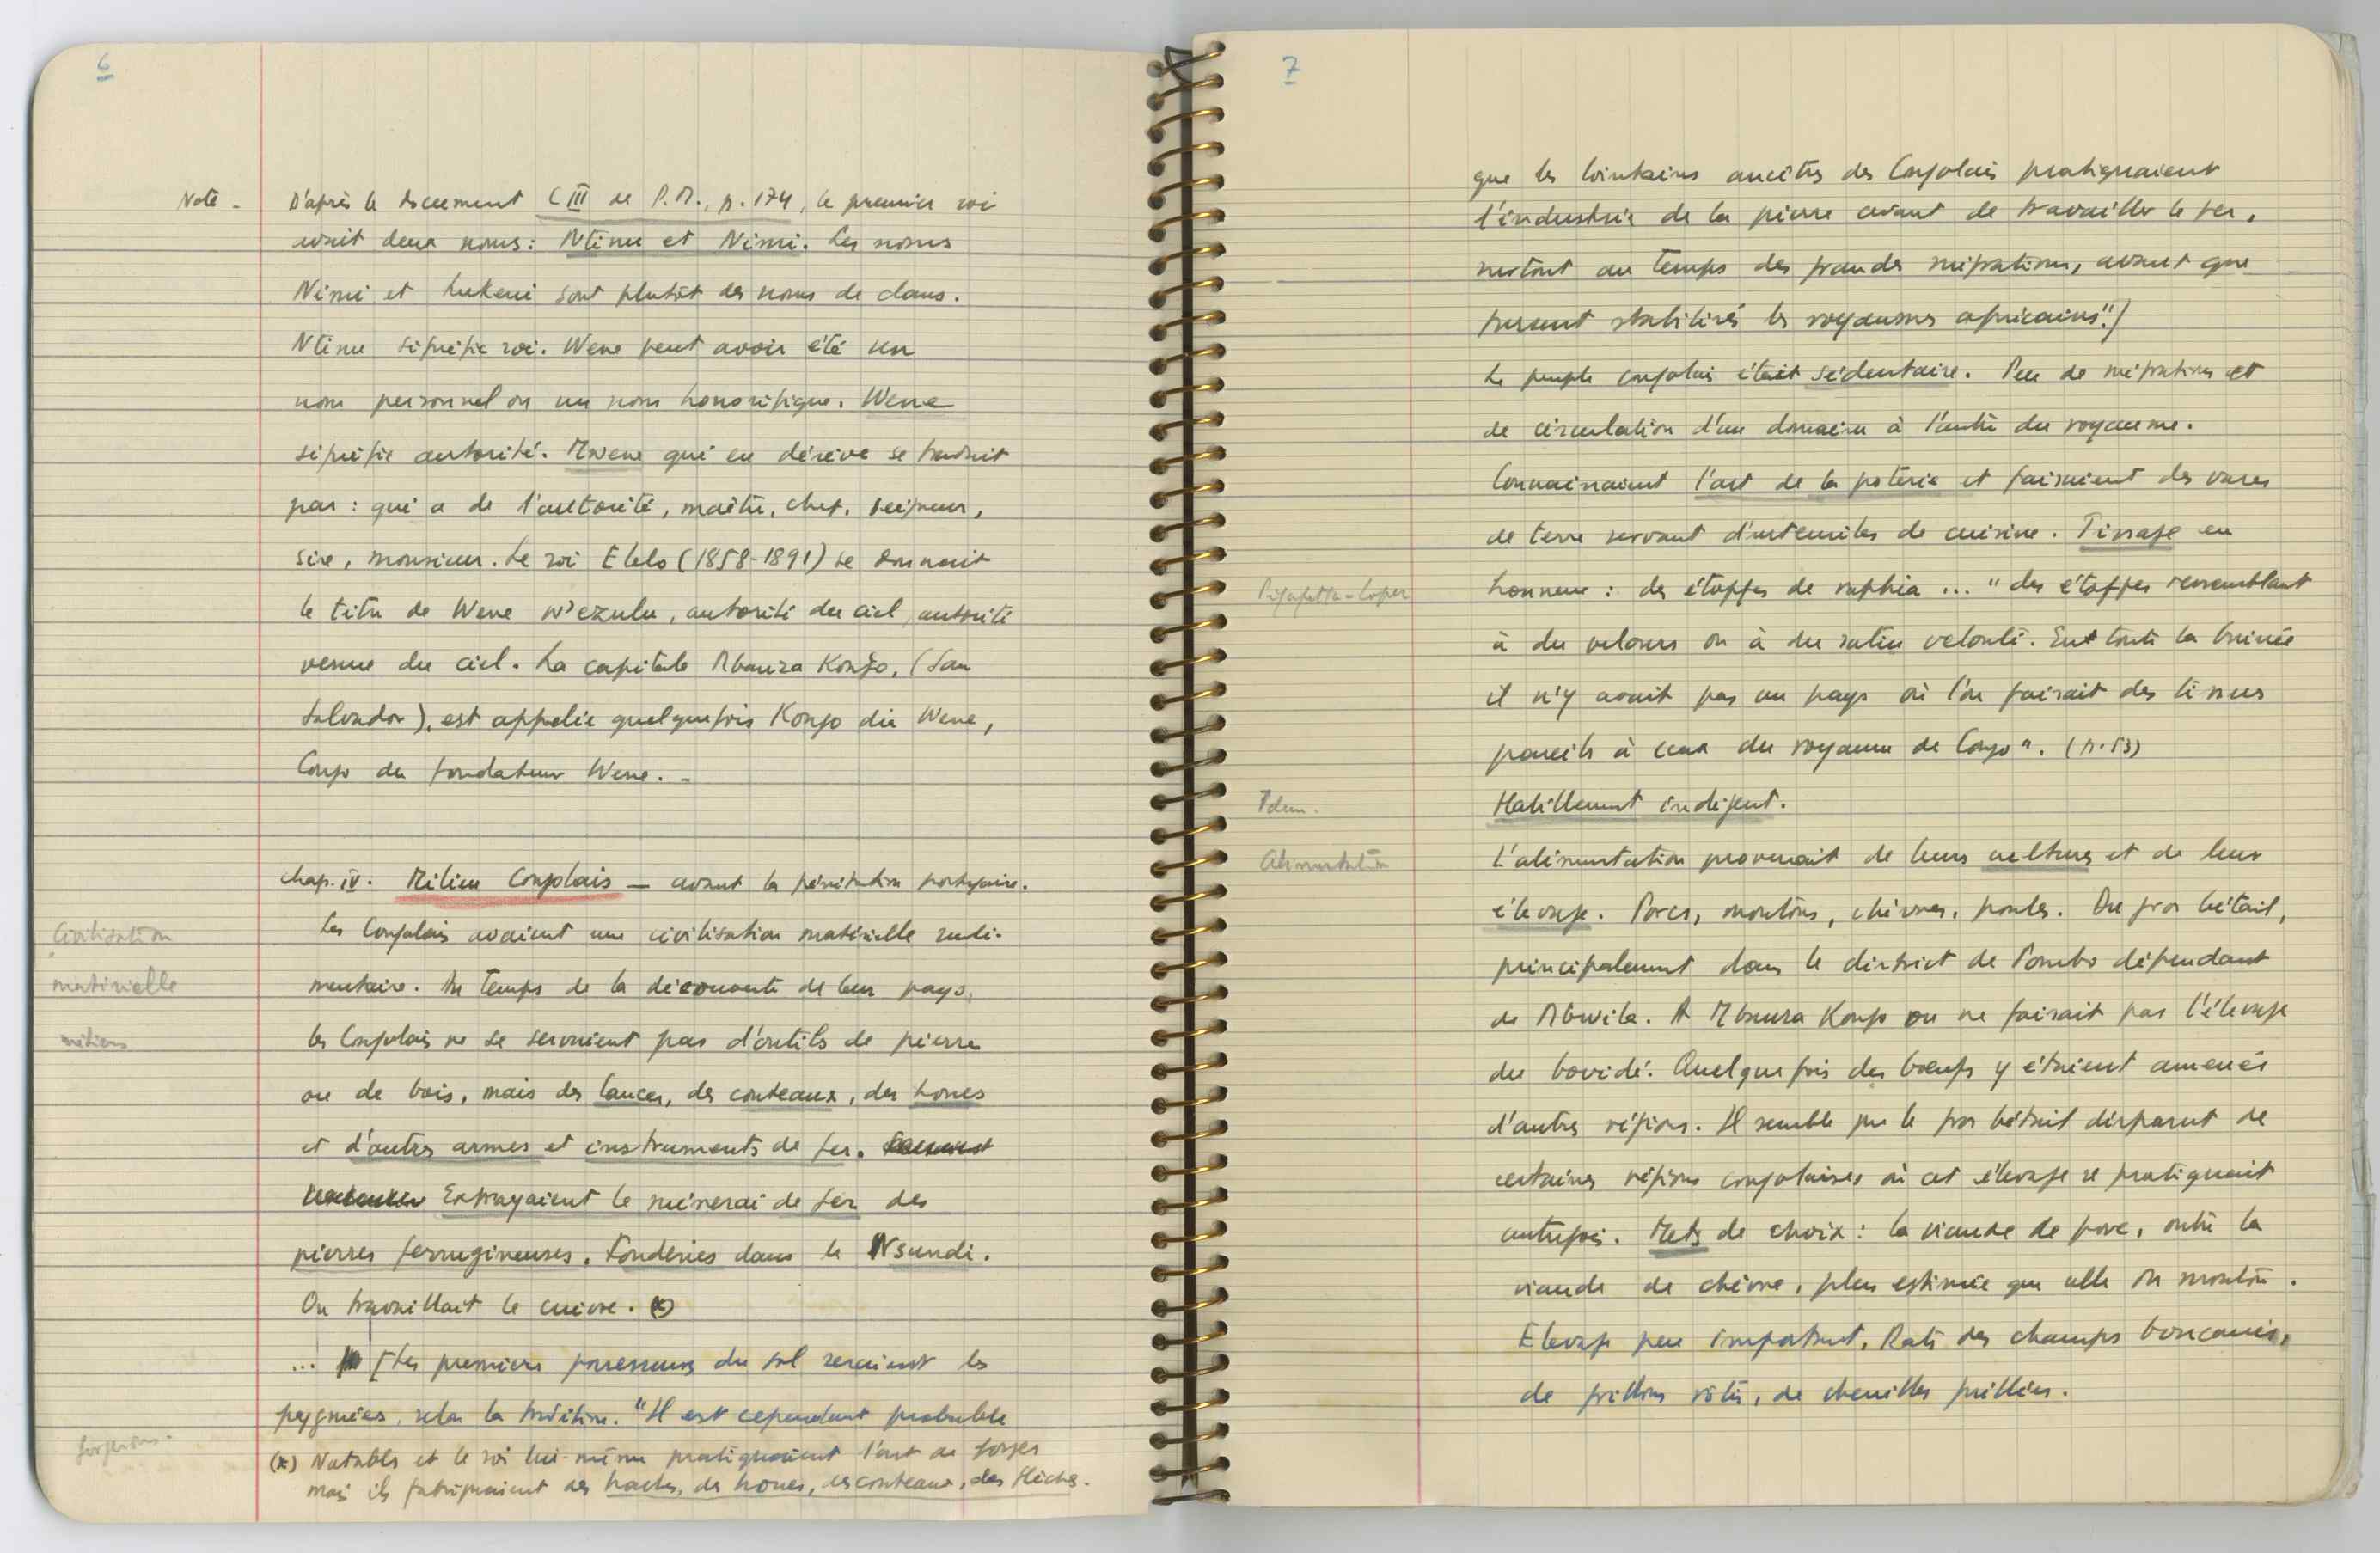 6
Note - D'après le document C III de P.M., p. 174, le premier roi
avait deux noms: Ntinu et Nimi. Les noms
Nimi et Lukeni sont plutôt des noms de clans.
Ntinu signifie roi. Wene peut avoir été un
nom personnel ou un nom honorifique. Wene
signifie autorité. Mwene qui en dérive se traduit
par : qui a de l'autorité, maître, chef, seigneur,
sire, monsieur. Le roi Elelo (1858-1891) se donnait
le titre de Wene w'ezulu, autorité du ciel, autorité
venue du ciel. La capitale Mbanza Kongo, (San
Salvador), est appelée quelquefois Kongo dia Wene,
Congo du fondateur Wene. -
Chap. IV. Milieu Congolais — avant la pénétration portugaise.
Les Congolais avaient une civilisation matérielle rudi-
Civilisation
matérielle
métiers
mentaire. Au temps de la découverte de leur pays,
les Congolais ne se servaient pas d'outils de pierre
ou de bois, mais des lances, des couteaux, des houes
et d'autres armes et instruments de fer.
Extrayaient le minerai de fer des
pierres ferrugineuses. Fonderies dans le Nsundi.
On travaillait le cuivre. (x)
... [Les premiers possesseurs du sol seraient les
pygmées, selon la tradition. "Il est cependant probable
forgerons.
(x) Notables et le roi lui-même pratiquaient l'art de forger
mais ils fabriquaient des haches, des houes, des couteaux, des flèches.
7
que les lointains ancêtres des Congolais pratiquaient
l'industrie de la pierre avant de travailler le fer,
surtout au temps des grandes migrations, avant que
fussent stabilisés les royaumes africains".]
Le peuple congolais était sédentaire. Peu de migrations et
de circulation d'un domaine à l'autre du royaume.
Connaissaient l'art de la poterie et faisaient des vases
de terre servant d'ustensiles de cuisine. Tissage en
Pigafetta-Lopez
honneur : des étoffes de raphia ... "des étoffes ressemblant
à du velours ou à du satin velouté. En toute la Guinée
il n'y avait pas un pays où l'on faisait des tissus
pareils à ceux du royaume de Congo". (p. 53)
Idem.
Habillement indigent.
Alimentation
L'alimentation provenait de leurs cultures et de leur
élevage. Porcs, moutons, chèvres, poules. Du gros bétail,
principalement dans le district de Pombo dépendant
de Mbwila. A Mbanza Kongo on ne faisait pas l'élevage
du bovidé. Quelquefois des bœufs y étaient amenés
d'autres régions. Il semble que le gros bétail disparut de
certaines régions congolaises où cet élevage se pratiquait
autrefois. Mets de choix : la viande de porc, outre la
viande de chèvre, plus estimée que celle du mouton.
Elevage peu important. Rats des champs boucanés,
de grillons rôtis, de chenilles grillées.